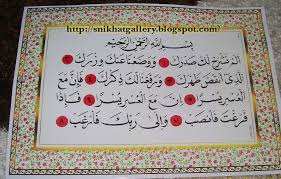 http://snikhatgallery.blogspot.com
بِسْمِ اللَّهِ الرَّحْمَنِ الرَّحِيمِ
أَلَمْ نَشْرَحْ لَكَ صَدْرَكَ ١ وَوَضَعْنَا عَنْكَ وِزْرَكَ ٢
الَّذِي أَنْقَضَ ظَهْرَكَ ٣ وَرَفَعْنَا لَكَ ذِكْرَكَ ٤ فَإِنَّ مَعَ
الْعُسْرِ يُسْرًا ٥ إِنَّ مَعَ الْعُسْرِ يُسْرًا ٦ فَإِذَا
فَرَغْتَ فَانْصَبْ ٧ وَإِلَى رَبِّكَ فَارْغَبْ ٨